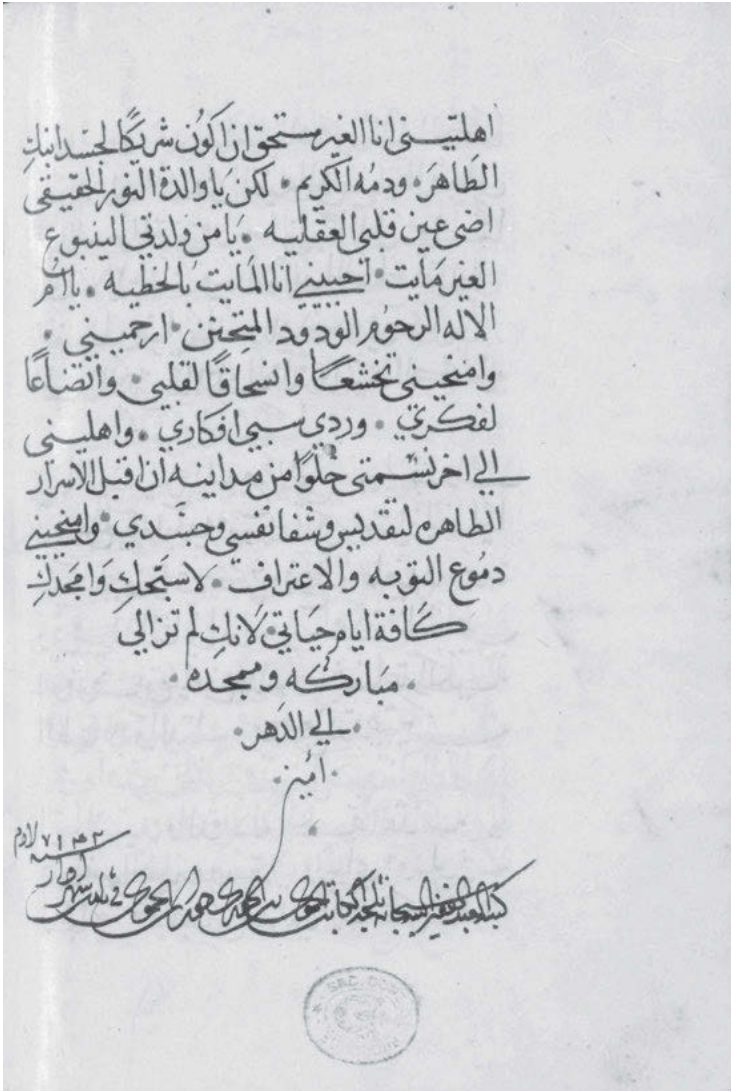 اهلتيني انا الغير مستحق ان اكون شريكًا لجسد ابنكِ
الطاهرَ • ودمُه الكريم • لكن يَا والدة النور الحقيقي
اضي عين قلبي العقليه • يَا من ولدتي الينبوع
الغير مَايت • احييني انا المَايت بَالخطيه • يا امُ
الاله الرحوُم الودود المتحنن • ارحميني •
وامنحيني تخشعًا وانسحاقًا لقلبي • واتضاعًا
لفكري • وردي سبي افكاري • واهليني
الي اخر نسَمتي خلوًا من مداينه ان اقبل الاسرار
الطاهره لتقديس وشفا نفسي وجسَدي • وامنحيني
دموُع التوبه والاعتراف • لاسبَحكِ وَامجدكِ
كَافة ايام حيَاتي • لانكِ لم تزالي
• مبَاركه وممجده •
• الي الدَهر •
• امين •
كتبه العبد الفقير في شهر ادار
سنه ٧١٣٢ لادم